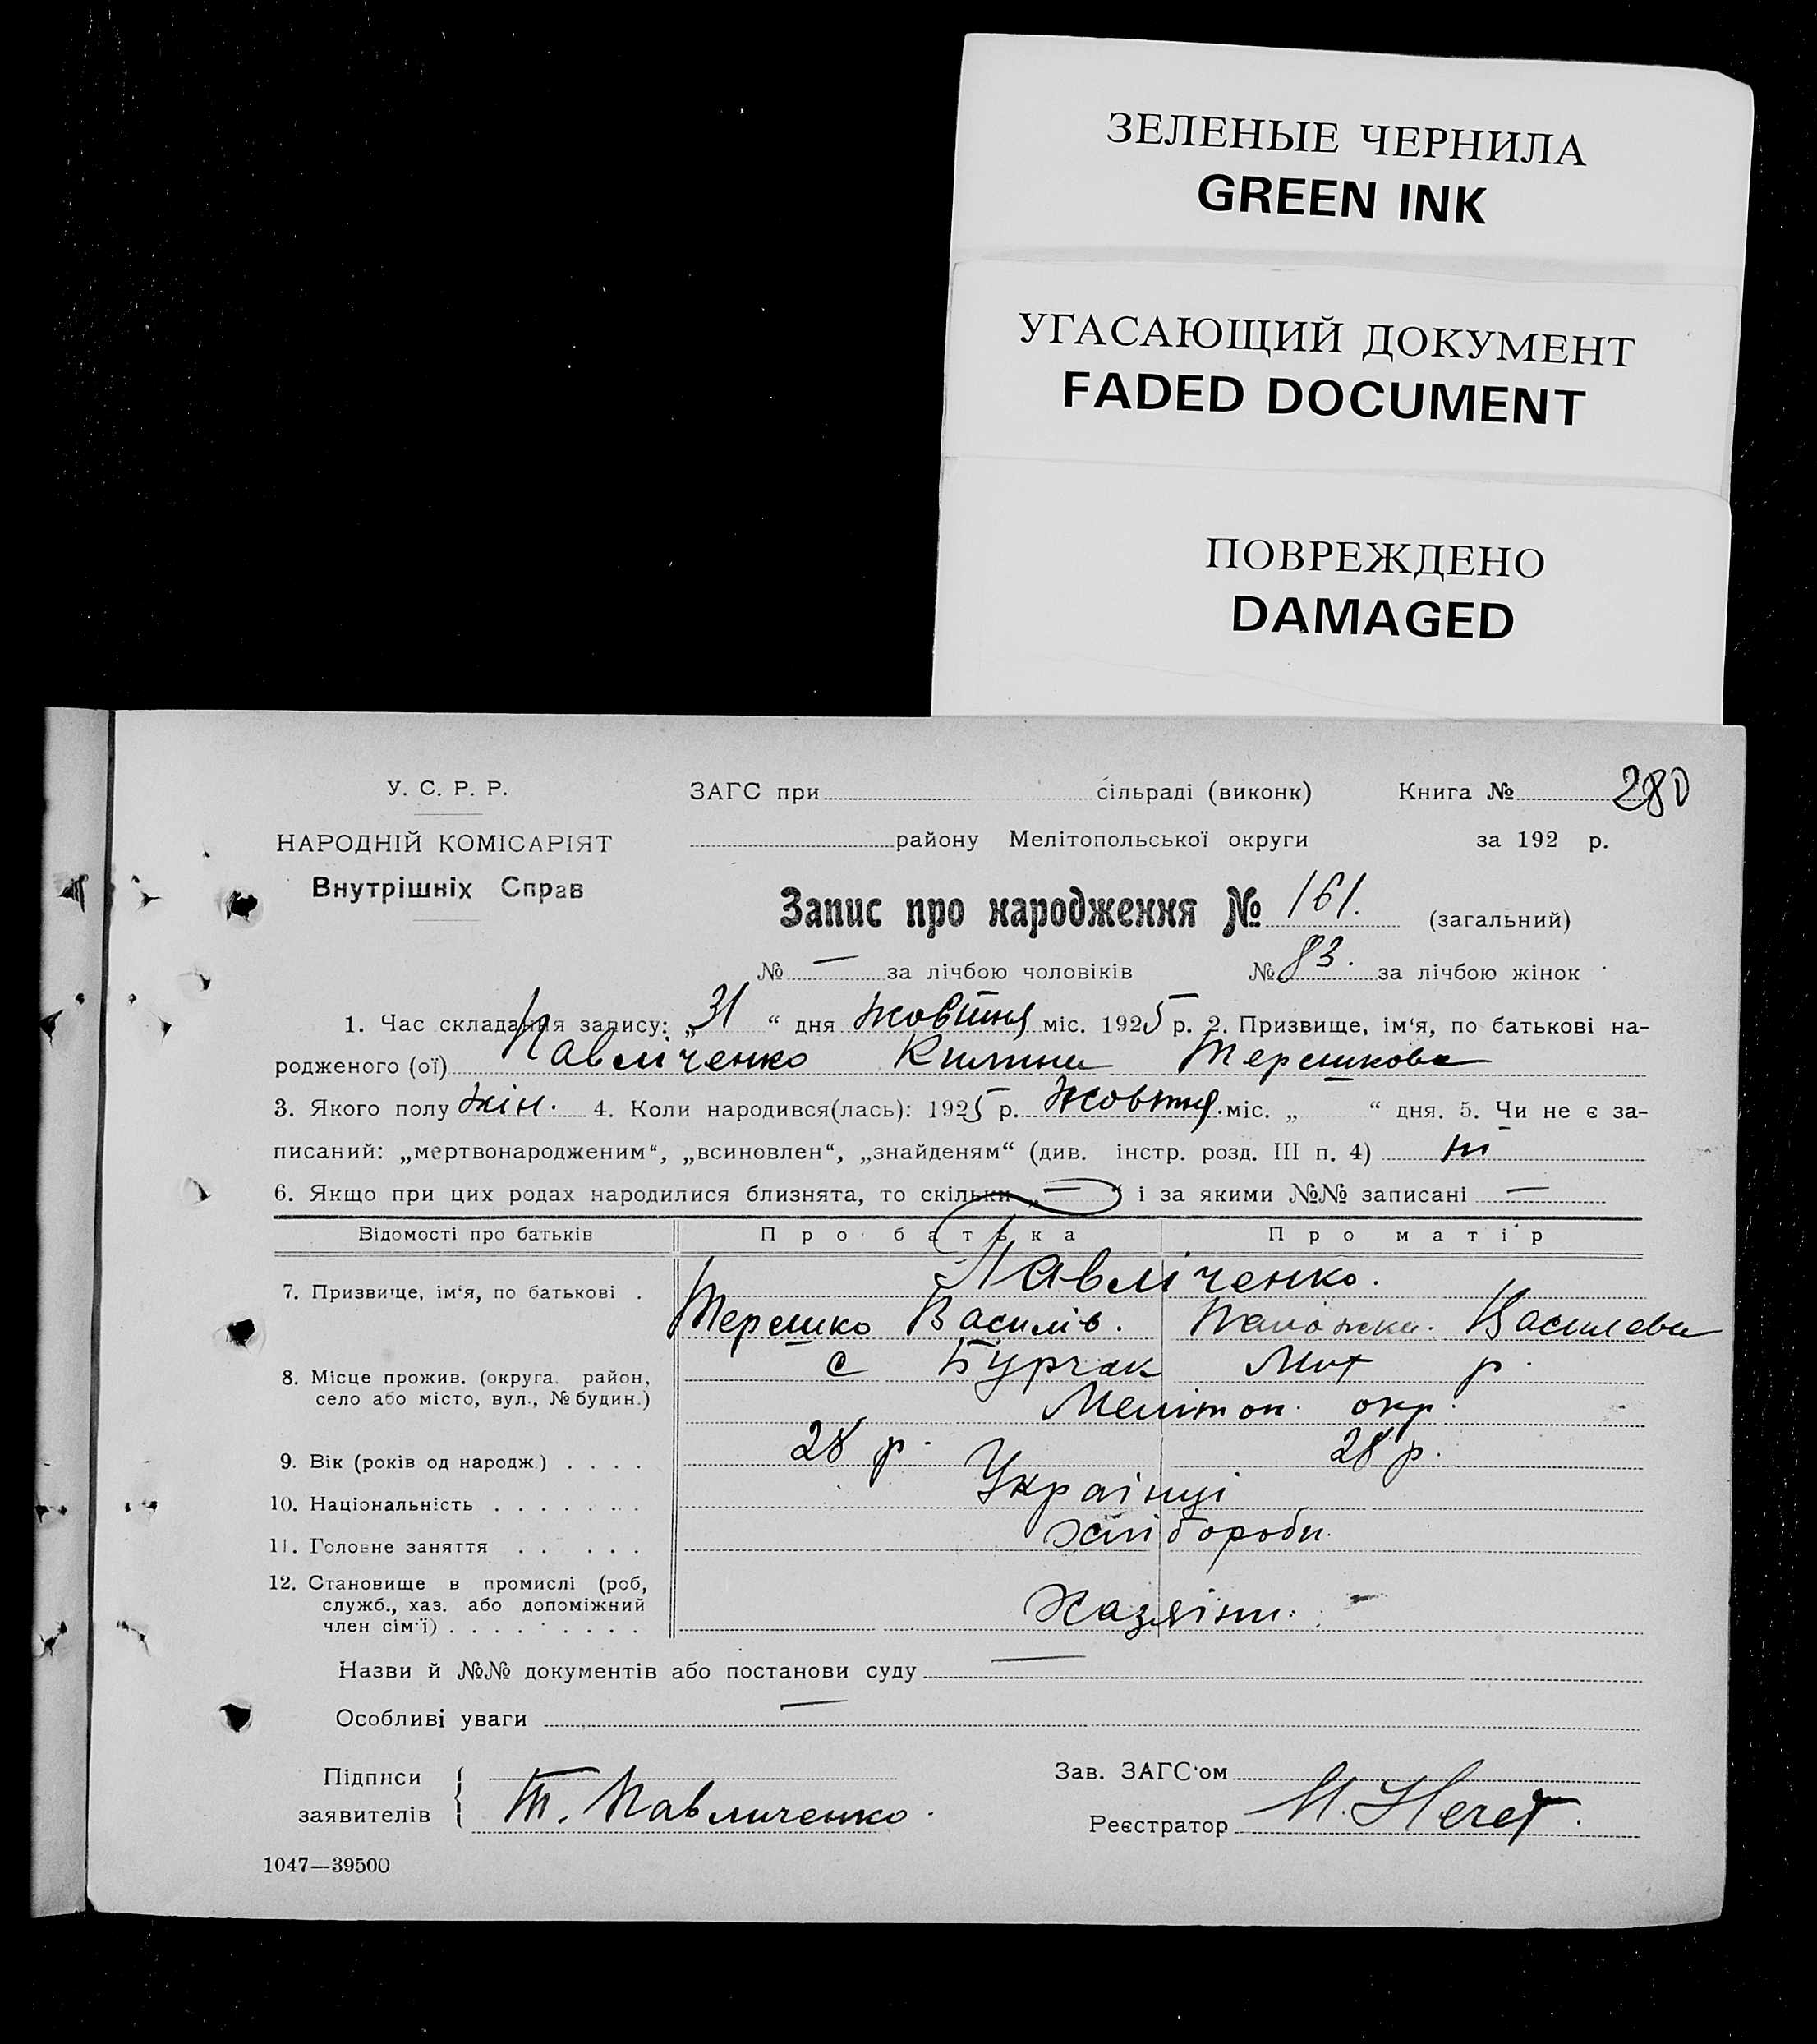 ЗЕЛЕНЫЕ ЧЕРНИЛА
GREEN INK
УГАСАЮЩИЙ ДОКУМЕНТ
FADED DOCUMENT
ПОВРЕЖДЕНО
DAMAGED
У. С. Р. Р.
НАРОДНІЙ КОМІСАРІЯТ
Внутрішніх Справ
ЗАГС при сільраді (виконк) Книга № 280
району Мелітопольської округи за 192 р.
Запис про народження № 161. (загальний)
№ — за лічбою чоловіків № 83. за лічбою жінок
1. Час складання запису: „31“ дня жовтня міс. 1925 р. 2. Призвище, ім‘я, по батькові на-
родженого (ої) Павліченко Килина Терешкова
3. Якого полу жін. 4. Коли народився(лась): 1925 р. Жовтня. міс. „ “ дня. 5. Чи не є за-
писаний: „мертвонародженим“, „всиновлен“, „знайденям“ (див. інстр. розд. III п. 4) ні
6. Якщо при цих родах народилися близнята, то скільки „—“ і за якими №№ записані —
Відомості про батьків Про батька Про матір
7. Призвище, ім‘я, по батькові . Павліченко.
Терешко Василів. Василева
8. Місце прожив. (округа, район,
село або місто, вул., № будин.)
с Бурчак Мих р.
Мелітоп. окр.
9. Вік (років од народж.) . . . . 28 р. 28 р.
10. Національність . . . . . . . Українці
11. Головне заняття . . . . . хлібороби.
12. Становище в промислі (роб,
служб., хаз. або допоміжний
член сім‘ї) . . . . . . . . . Хазяїни.
Назви й №№ документів або постанови суду —
Особливі уваги —
Підписи
заявителів Т. Павличенко.
Зав. ЗАГС‘ом
Реєстратор М.
1047—39500